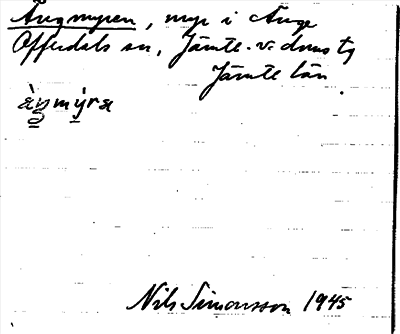 Ängmyren, myr i Änge
Offerdals sn, Jämtl. v. domstg
Jämtl län.
Nils Simonsson 1945